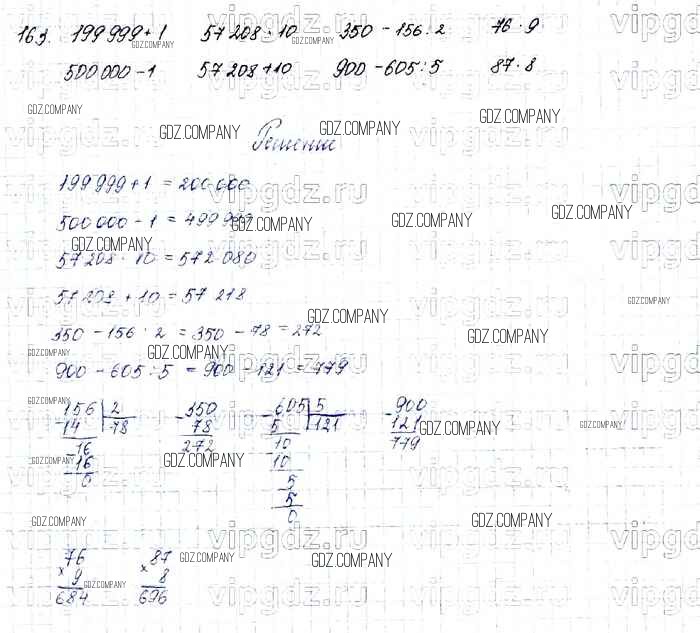 163. 199 999 + 1 57 208 · 10 350 - 156 : 2 76 · 9
500 000 - 1 57 208 + 10 900 - 605 : 5 87 · 8
Решение
199 999 + 1 = 200 000
500 000 - 1 = 499 999
57 208 · 10 = 572 080
57 208 + 10 = 57 218
350 - 156 : 2 = 350 - 78 = 272
900 - 605 : 5 = 900 - 121 = 779
156 | 2 - 350 - 605 | 5 - 900
- 14 78 78 5 121 121
- 16 272 - 10 779
16 10
0 - 5
5
0
× 76 × 87
9 8
684 696
GDZ.COMPANY
vipgdz.ru